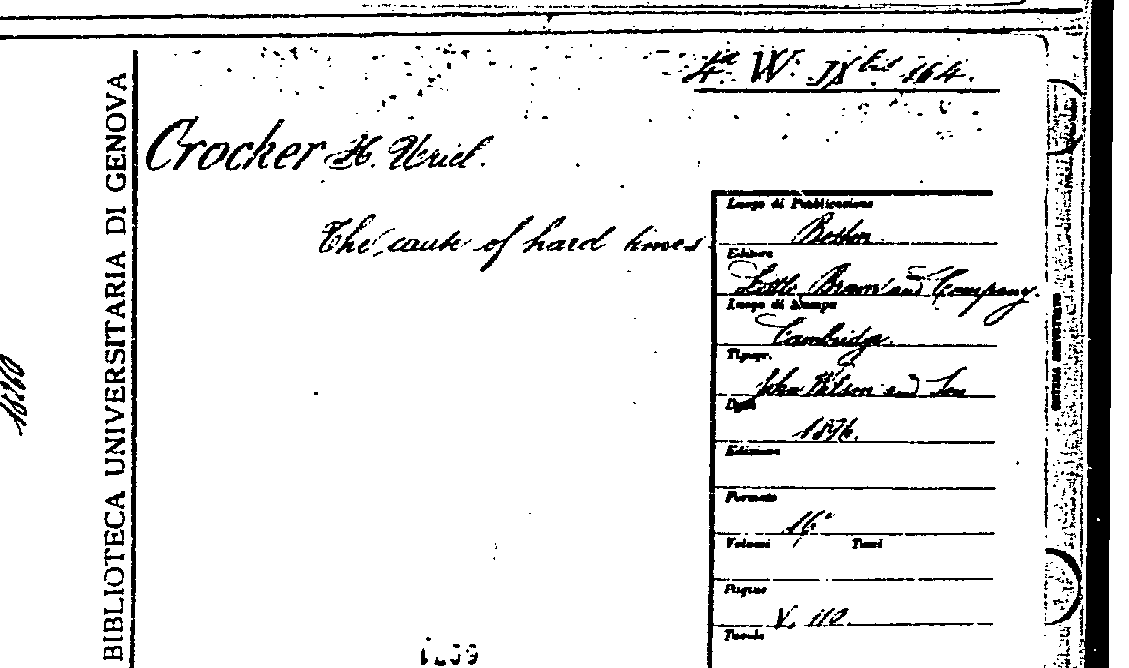 4ª W. IXbis 164.
BIBLIOTECA UNIVERSITARIA DI GENOVA
Crocker H. Uriel.
The cause of hard times
Luogo di Pubblicazione
Boston
Editore
Little Brown and Company.
Luogo di Stampa
Cambridge.
Tipogr.
John Wilson and Son
Data
1896.
Edizione
Formato
16°
Volumi Tomi
Pagine
V. 110.
Tavole